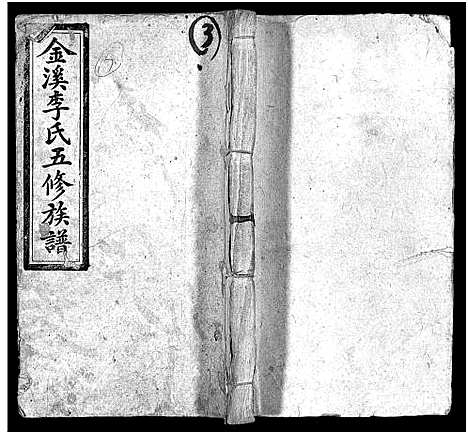 金溪李氏五修族譜
3